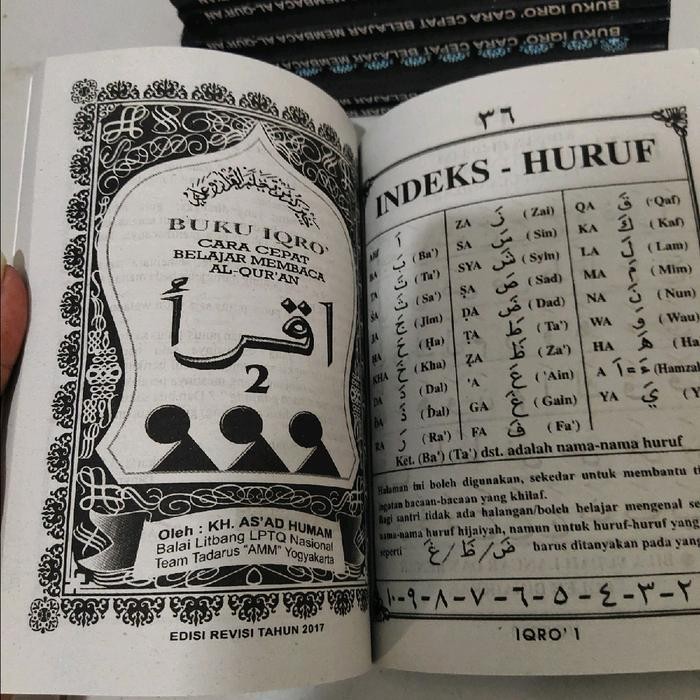 BUKU IQRO' CARA CEPAT BELAJAR MEMBACA AL-QUR'AN
BUKU IQRO' CARA CEPAT BELAJAR MEMBACA AL-QUR'AN
BUKU IQRO'
CARA CEPAT
BELAJAR MEMBACA
AL-QUR'AN
اقرأ
2
Oleh : KH. AS'AD HUMAM
Balai Litbang LPTQ Nasional
Team Tadarus "AMM" Yogyakarta
EDISI REVISI TAHUN 2017
٣٦
INDEKS - HURUF
أَ
BA بَ (Ba')
TA تَ (Ta')
ṠA ثَ (Sa')
JA جَ (Jim)
ḤA حَ (Ḥa)
KHA خَ (Kha)
DA دَ (Dal)
ḎA ذَ (Ḋal)
RA رَ (Ra')
ZA زَ (Zai)
SA سَ (Sin)
SYA شَ (Syin)
ṢA صَ (Sad)
ḌA ضَ (Dad)
ṬA طَ (Ta')
ẒA ظَ (Za')
'A عَ ('Ain)
GA غَ (Gain)
FA فَ (Fa')
QA قَ (Qaf)
KA كَ (Kaf)
LA لَ (Lam)
MA مَ (Mim)
NA نَ (Nun)
WA وَ (Wau)
HA هَ (Ha
A ءَ = أَ (Hamzah
YA يَ (Y
Ket. (Ba') (Ta') dst. adalah nama-nama huruf
Halaman ini boleh digunakan, sekedar untuk membantu
ingatan bacaan-bacaan yang khilaf.
Bagi santri tidak ada halangan/boleh belajar mengenal
nama-nama huruf hijaiyah, namun untuk huruf-huruf yang
seperti ضَ / ظَ / غَ harus ditanyakan pada yang
١٠-٩-٨-٧-٦-٥-٤-٣-٢
IQRO' 1